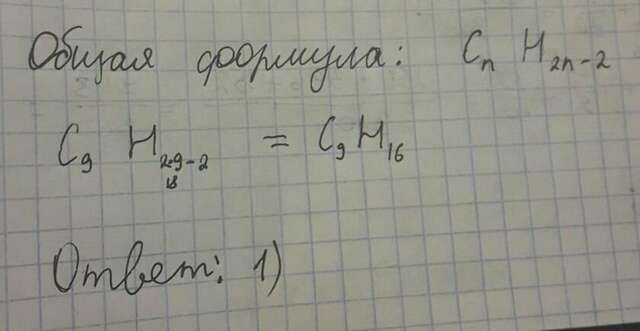 Общая формула: CnH2n-2
C9H2·9-2 = C9H16
18
Ответ: 1)